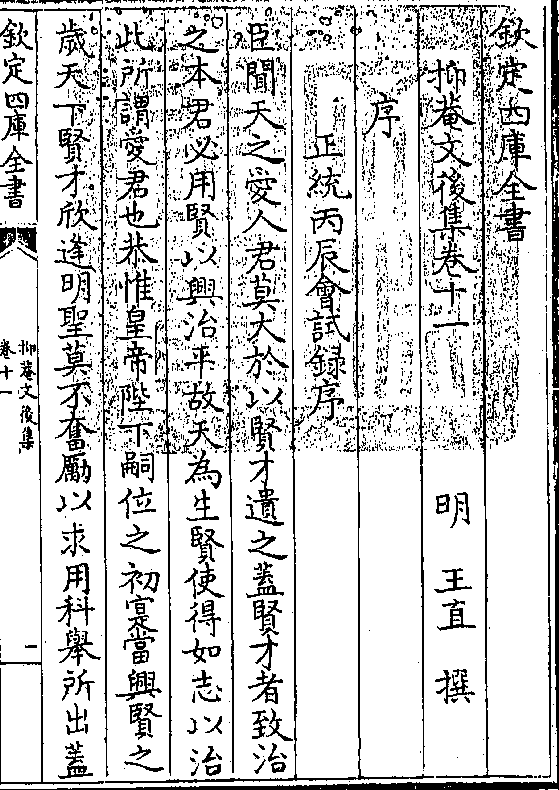 欽定四庫全書
抑菴文後集卷十一
明 王直 撰
序
正統丙辰會試録序
臣聞天之愛人君莫大於以賢才遺之蓋賢才者致治
之本君必用賢以興治平故天為生賢使得如志以治
此所謂愛君也恭惟皇帝陛下嗣位之初寔當興賢之
歲天下賢才欣逢明聖莫不奮勵以求用科舉所出蓋
欽定四庫全書
抑菴文後集
卷十一
一